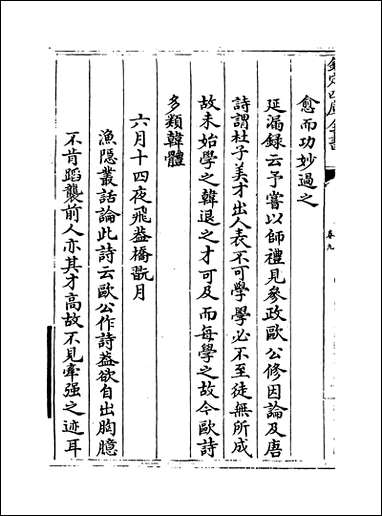 欽定四庫全書
卷九
愈而功妙過之
延漏録云予嘗以師禮見參政歐公修因論及唐
詩謂杜子美才出人表不可學學必不至徒無所成
故未始學之韓退之才可及而每學之故今歐詩
多類韓體
六月十四夜飛蓋橋翫月
漁隱叢話論此詩云歐公作詩蓋欲自出胸臆
不肯蹈襲前人亦其才高故不見牽强之迹耳